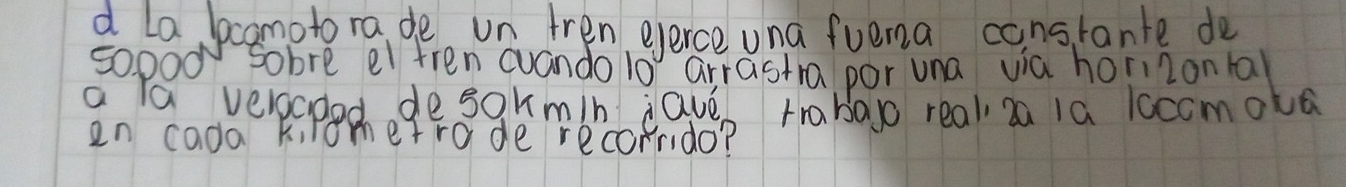 d La locomotora de un tren ejerce una fuerza constante de
50000N sobre el tren cuando lo arrastra por una vía horizontal
a la velocidad de 50km/h ¿qué trabajo realiza la locomotora
en cada kilometro de recorrido?